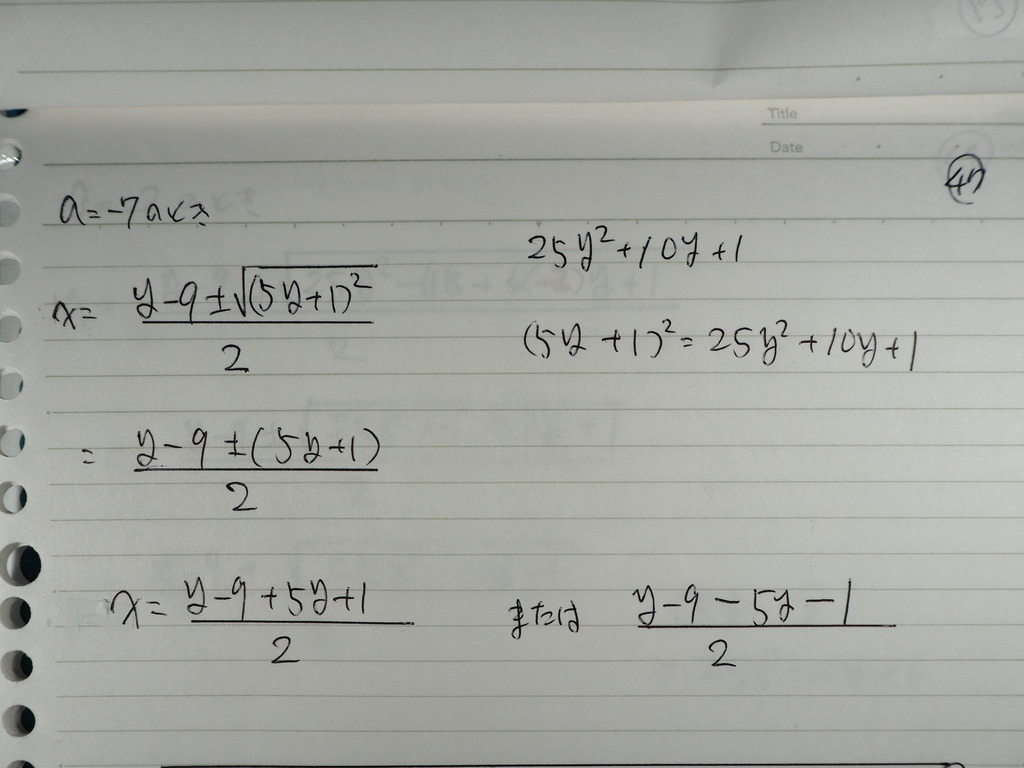 Title
Date
47
a=-7のとき
x= (y-9±√(5y+1)²)/2
25y²+10y+1
(5y+1)²=25y²+10y+1
= (y-9±(5y+1))/2
x= (y-9+5y+1)/2 または (y-9-5y-1)/2